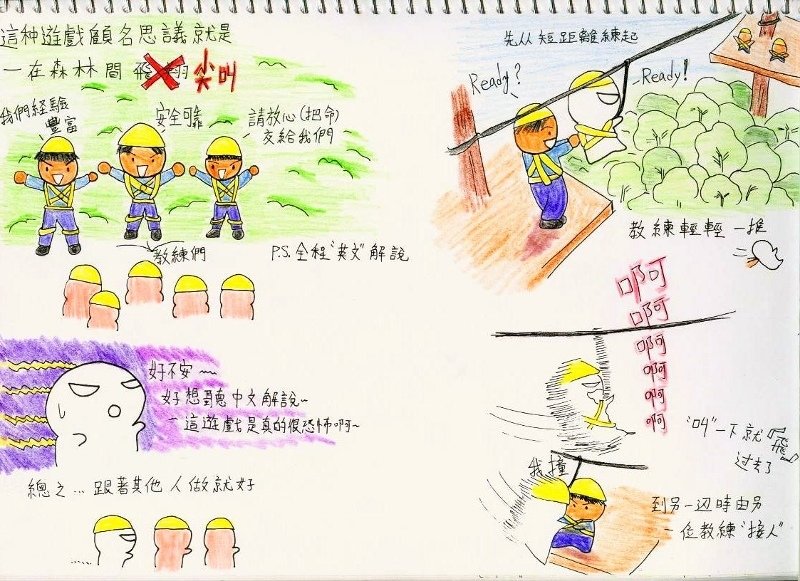 這种遊戲顧名思議就是
一在森林間飛翔尖叫
我們經驗
豐富
安全可靠
請放心(把命)
交給我們
教練們
P.S.全程"英文"解說
好不安~
好想聽中文解說~
這遊戲是真的很恐怖啊~
總之...跟著其他人做就好
先从短距離練起
Ready?
Ready!
教練輕輕一推
啊
啊
啊
啊
啊
啊
"叫"一下就飛
過去了
我撞
到另一边時由另
一位教練"接人"